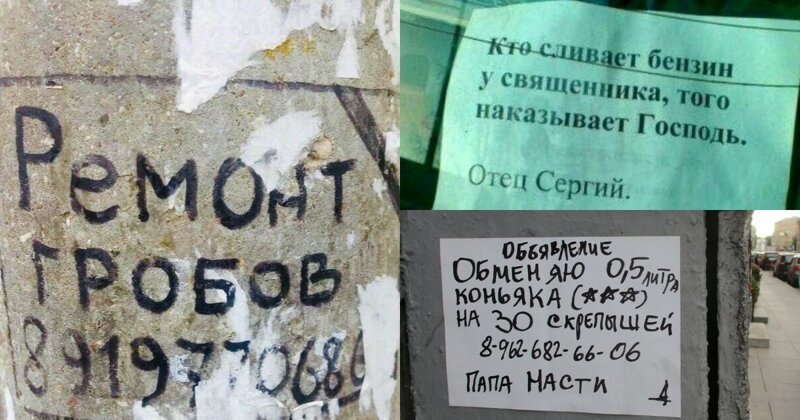 Ремонт
гробов
8919770686
Кто сливает бензин
у священника, того
наказывает Господь.
Отец Сергий.
ОБЬЯВЛЕНИЕ
ОБМЕНЯЮ 0,5 ЛИТРА
КОНЬЯКА (★★★)
НА 30 СКРЕПЫШЕЙ
8-962-682-66-06
ПАПА НАСТИ